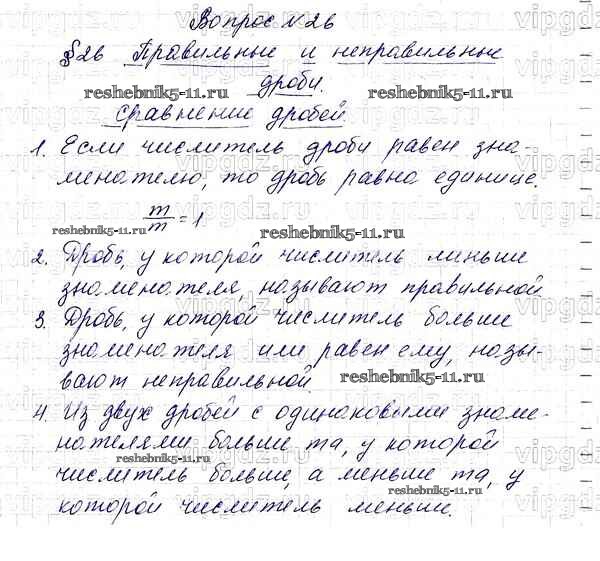 Вопрос №26
§26 Правильные и неправильные
дроби.
Сравнение дробей.
1. Если числитель дроби равен зна-
менателю, то дробь равна единице.
m/m = 1.
2. Дробь, у которой числитель меньше
знаменателя, называют правильной
3. Дробь, у которой числитель больше
знаменателя или равен ему, назы-
вают неправильной.
4. Из двух дробей с одинаковыми знаме-
нателями больше та, у которой
числитель больше, а меньше та, у
которой числитель меньше.
reshebnik5-11.ru
reshebnik5-11.ru
reshebnik5-11.ru
reshebnik5-11.ru
reshebnik5-11.ru
reshebnik5-11.ru
reshebnik5-11.ru
vipgdz.ru